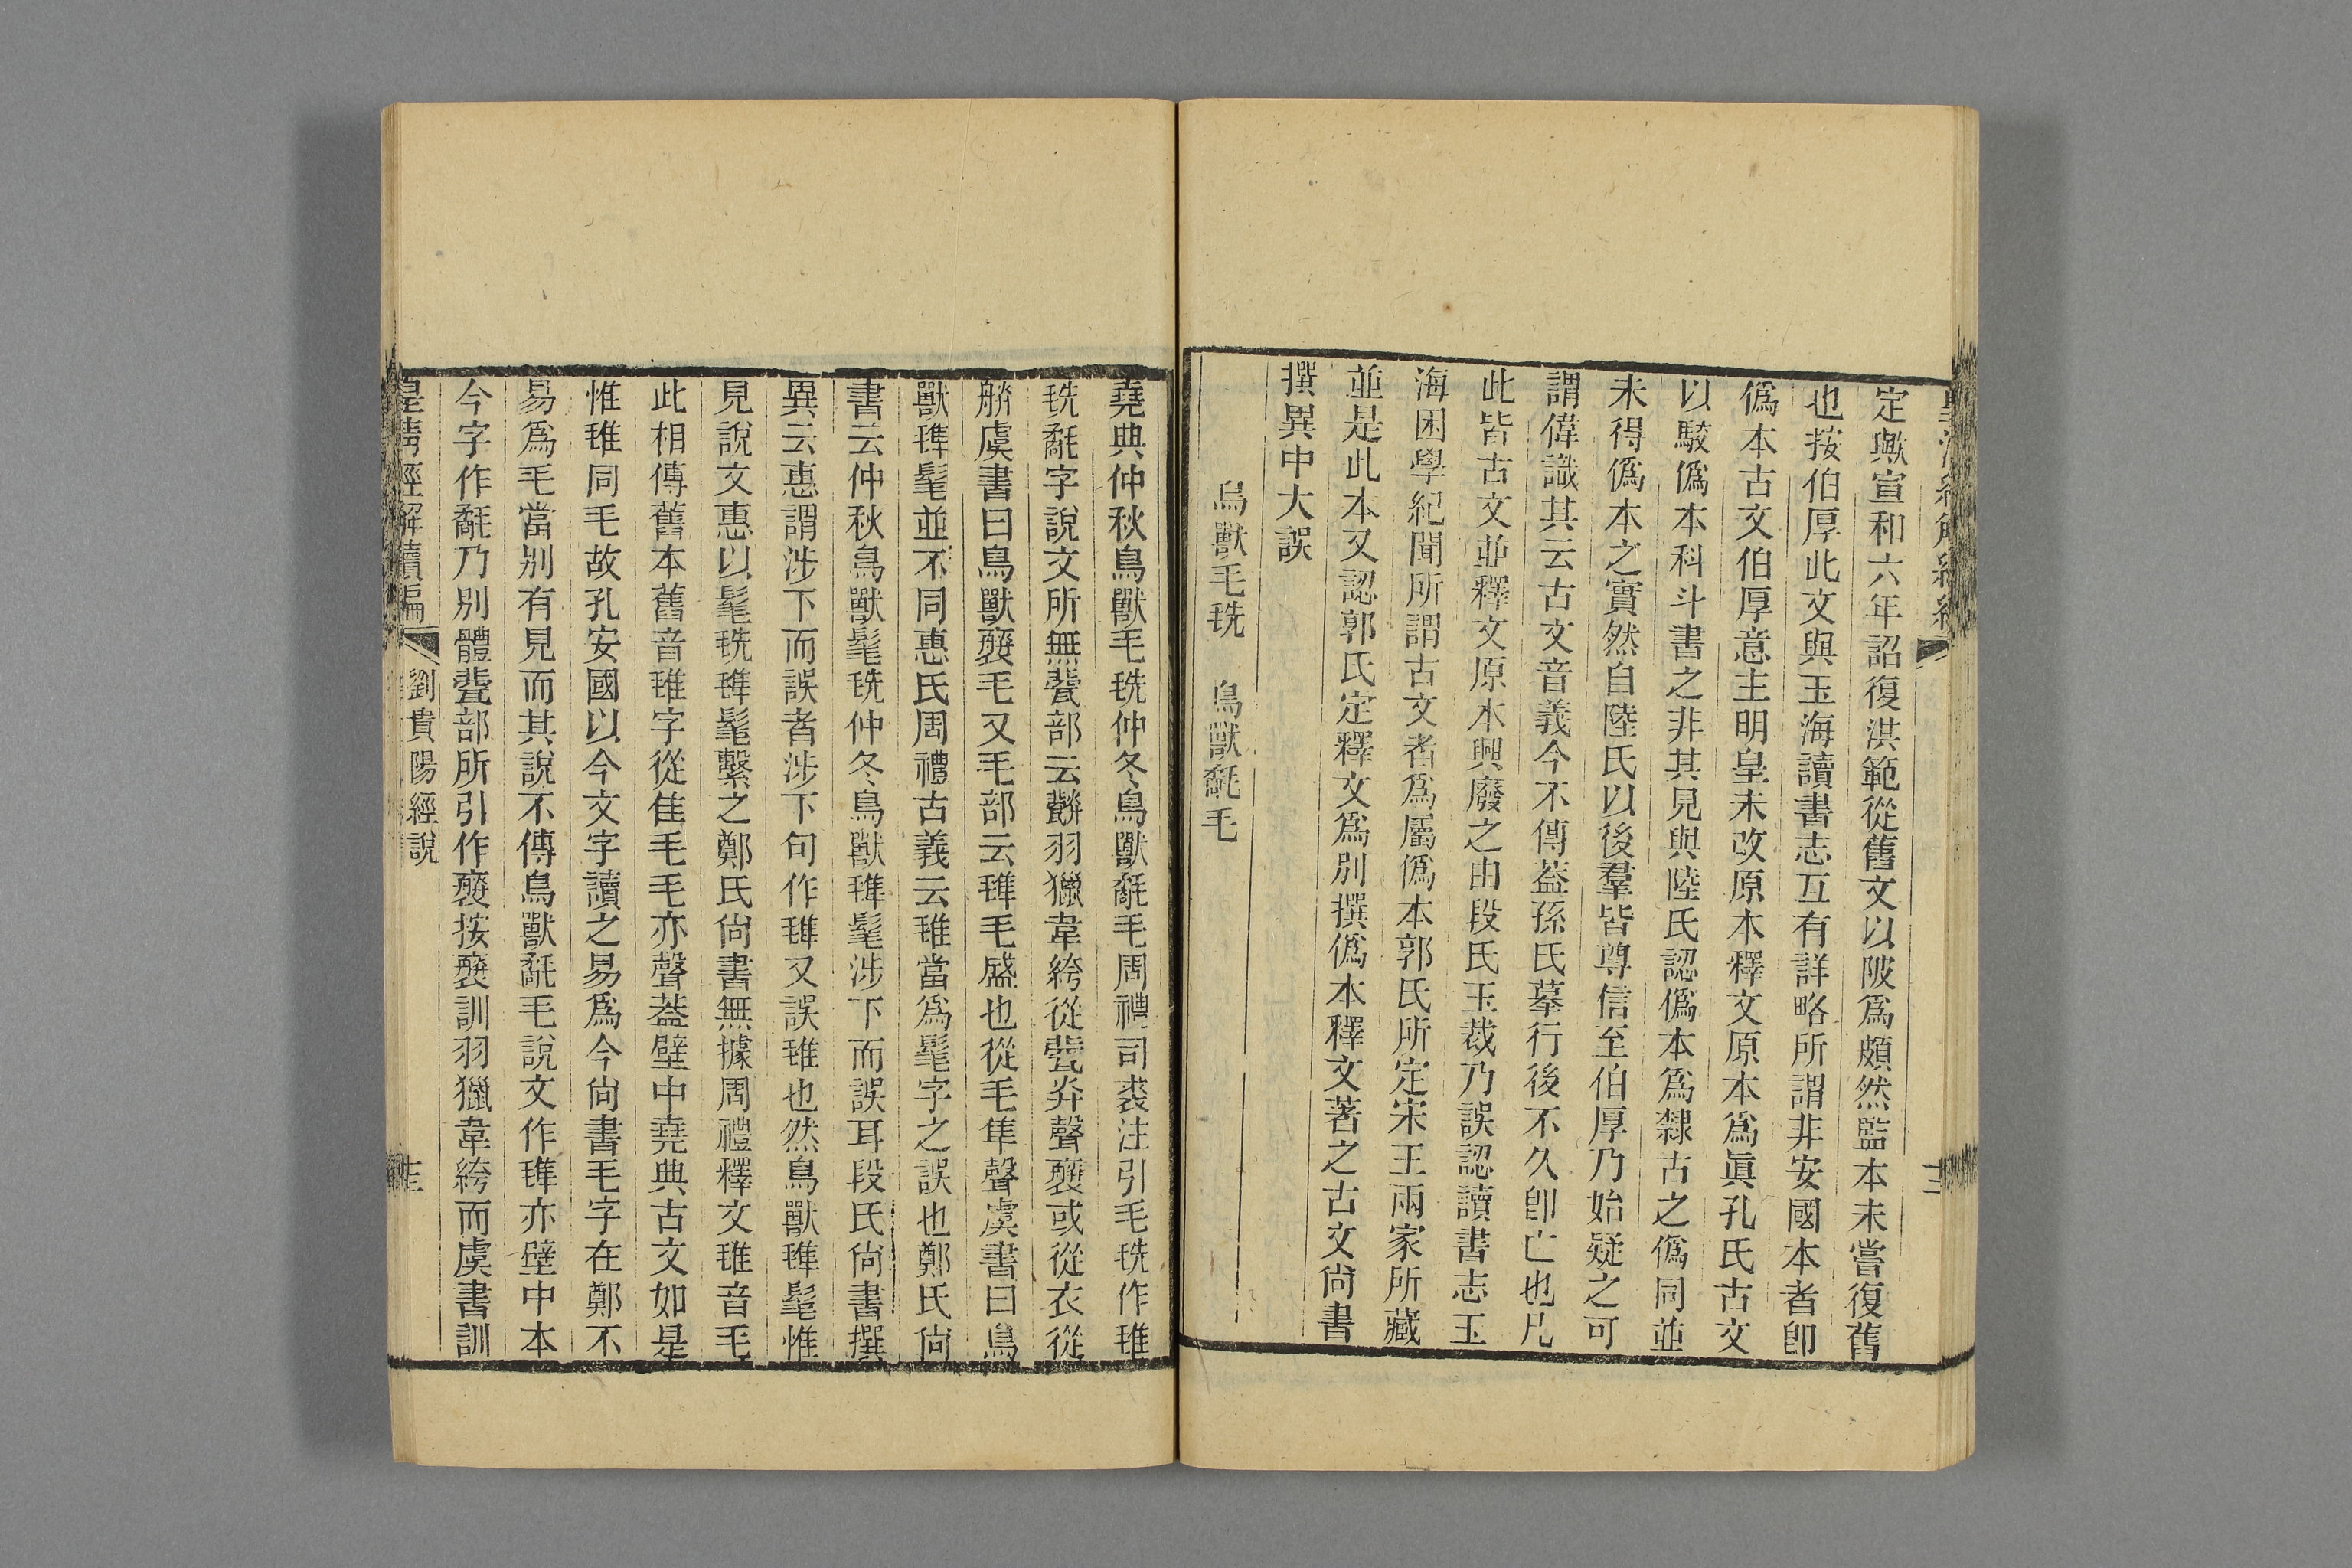 皇清經解續編
十二
定歟宣和六年詔復洪範從舊文以陂爲頗然監本未嘗復舊
也按伯厚此文與玉海讀書志互有詳略所謂非安國本者卽
僞本古文伯厚意主明皇未改原本釋文原本爲眞孔氏古文
以駮僞本科斗書之非其見與陸氏認僞本爲隸古之僞同並
未得僞本之實然自陸氏以後羣皆尊信至伯厚乃始疑之可
謂偉識其云古文音義今不傳葢孫氏摹行後不久卽亡也凡
此皆古文並釋文原本興廢之由段氏玉裁乃誤認讀書志玉
海困學紀聞所謂古文者爲屬僞本郭氏所定宋王兩家所藏
並是此本又認郭氏定釋文爲別撰僞本釋文著之古文尙書
撰異中大誤
鳥獸毛毨　鳥獸氄毛
堯典仲秋鳥獸毛毨仲冬鳥獸氄毛周禮司裘注引毛毨作𣯍
毨氄字說文所無㲨部云𣯍羽獵韋絝從㲨灷聲褎或從衣從
朕虞書曰鳥獸褎毛又毛部云𣯍毛盛也從毛隼聲虞書曰鳥
獸𣯍髦並不同惠氏周禮古義云𣯍當爲髦字之誤也鄭氏尙
書云仲秋鳥獸髦毨仲冬鳥獸𣯍髦涉下而誤耳段氏尙書撰
異云惠謂涉下而誤者涉下句作𣯍又誤𣯍也然鳥獸𣯍髦惟
見說文惠以髦毨𣯍髦繫之鄭氏尙書無據周禮釋文𣯍音毛
此相傳舊本舊音𣯍字從隹毛毛亦聲葢壁中堯典古文如是
惟𣯍同毛故孔安國以今文字讀之易爲今尙書毛字在鄭不
易爲毛當別有見而其說不傳鳥獸氄毛說文作𣯍亦壁中本
今字作氄乃別體㲨部所引作褎按褎訓羽獵韋絝而虞書訓
皇清經解續編
劉貴陽經說
十三